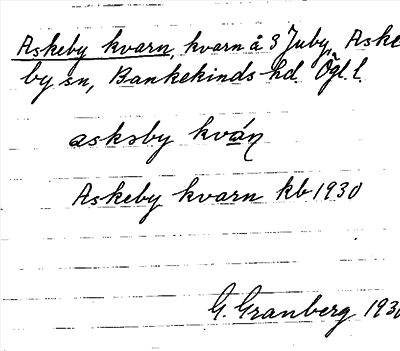 Askeby kvarn, kvarn å 3 Juby, Aske
by sn, Bankekinds hd. Ögl. l.
askəby kvaɳ
Askeby kvarn kb 1930
G. Granberg 1930